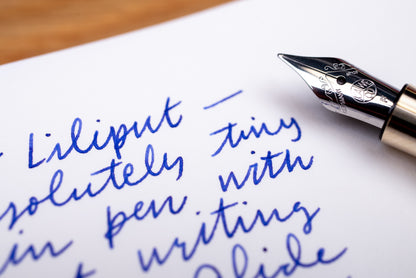 Liliput –
solutely tiny
in pen with
t writing
lide